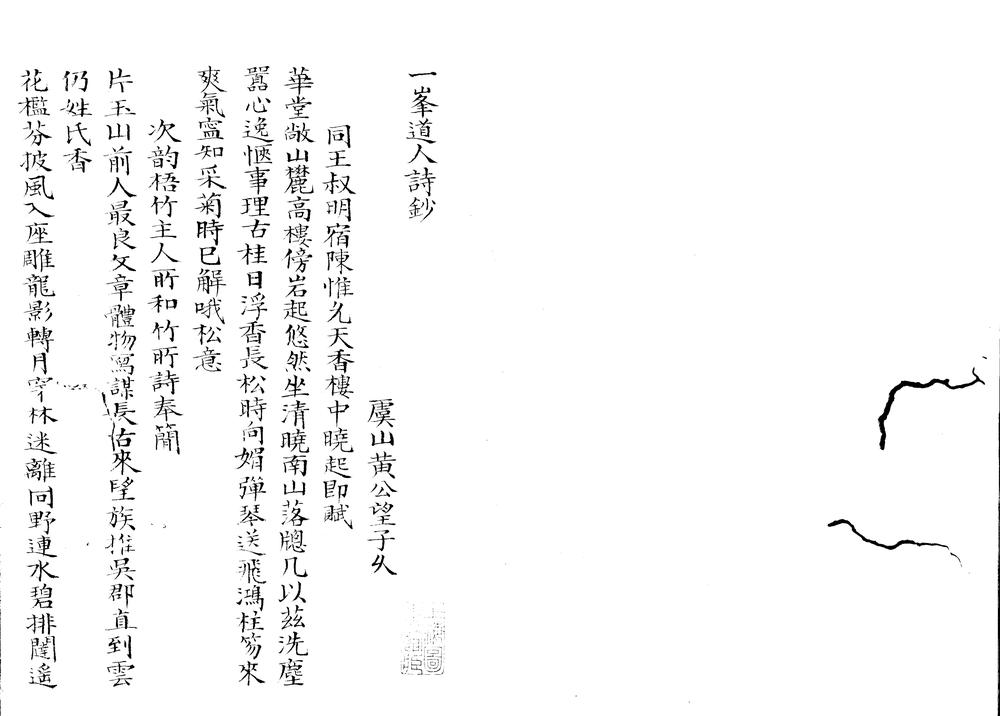 一峯道人詩鈔
虞山黃公望子久
同王叔明宿陳惟允天香樓中曉起即賦
華堂敞山麓高樓傍岩起悠然坐清曉南山落牕几以茲洗塵
囂心逸愜事理古桂日浮香長松時向媚彈琴送飛鴻柱笏來
爽氣寍知采菊時已解哦松意
次韵梧竹主人所和竹所詩奉簡
片玉山前人最良文章體物寫謀長佔來望族推吳郡直到雲
仍姓氏香
花檻芬披風入座雕龍影轉月穿林迷離同野連水碧排闥遙